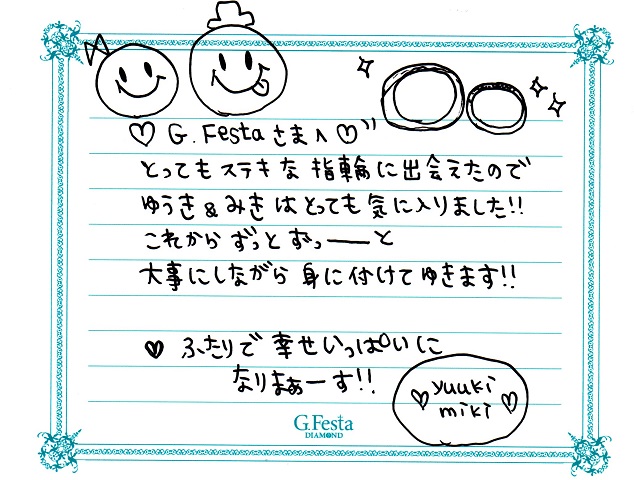 ♡ G.Festaさまへ♡"
とってもステキな指輪に出会えたので
ゆうき&みきはとっても気に入りました!!
これからずっとずっーーと
大事にしながら身に付けてゆきます!!
♥ ふたりで幸せいっぱいに
なりまぁーす!!
♡ yuuki miki ♡
G.Festa
DIAMOND